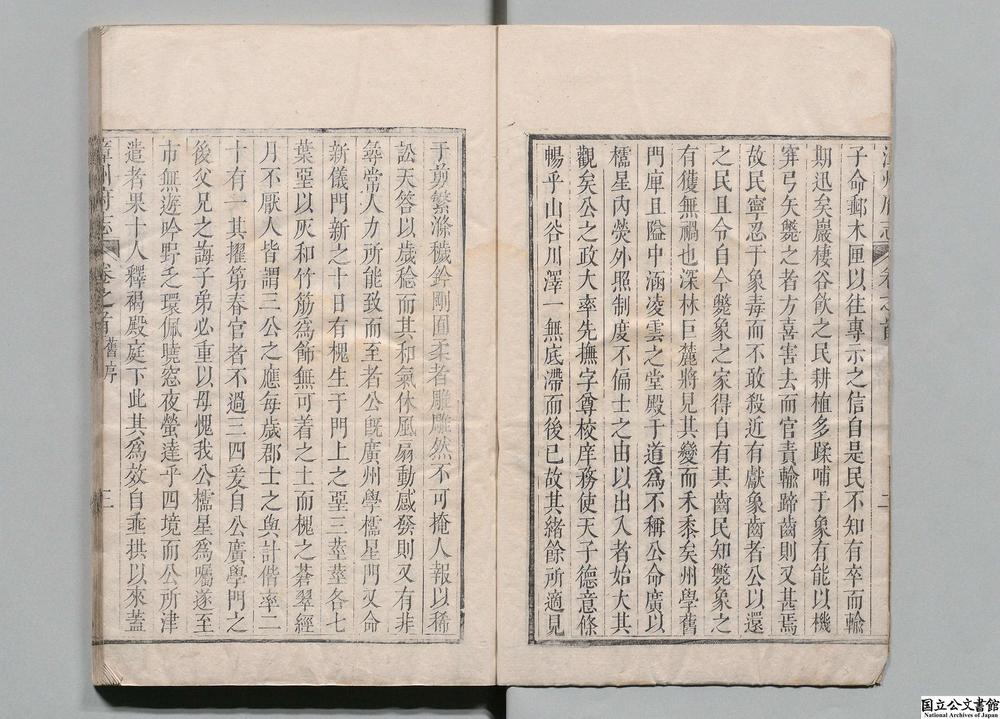 子命郵木匣以往專示之信自是民不知有卒而輸
期迅矣巖棲谷飲之民耕植多蹂哺于象有能以機
穽弓矢斃之者方喜害去而官責輸蹄齒則又甚焉
故民寧忍于象毒而不敢殺近有獻象齒者公以還
之民且令自今斃象之家得自有其齒民知斃象之
有獲無禍也深林巨麓將見其變而禾黍矣州學舊
門庳且隘中涵凌雲之堂殿于道爲不稱公命廣以
櫺星內熒外照制度不偏士之由以出入者始大其
觀矣公之政大率先撫字尊校庠務使天子德意條
暢乎山谷川澤一無底滯而後已故其緒餘所適見
于剪繁滌穢鈐剛圓柔者雝雝然不可掩人報以稀
訟天答以歲稔而其和氣休風扇動感發則又有非
尋常人力所能致而至者公旣廣州學櫺星門又命
新儀門新之十日有槐生于門上之堊三莖莖各七
葉堊以灰和竹筋爲飾無可着之土而槐之蒼翠經
月不厭人皆謂三公之應每歲郡士之與計偕率二
十有一其擢第春官者不過三四爰自公廣學門之
後父兄之誨子弟必重以毋愧我公櫺星爲囑遂至
市無遊吟野乏環佩曉窓夜螢達乎四境而公所津
遣者果十人釋褐殿庭下此其爲效自乖拱以來蓋
漳州府志
卷之首
舊序
三
漳州府志
卷之首
二
国立公文書館
National Archives of Japan